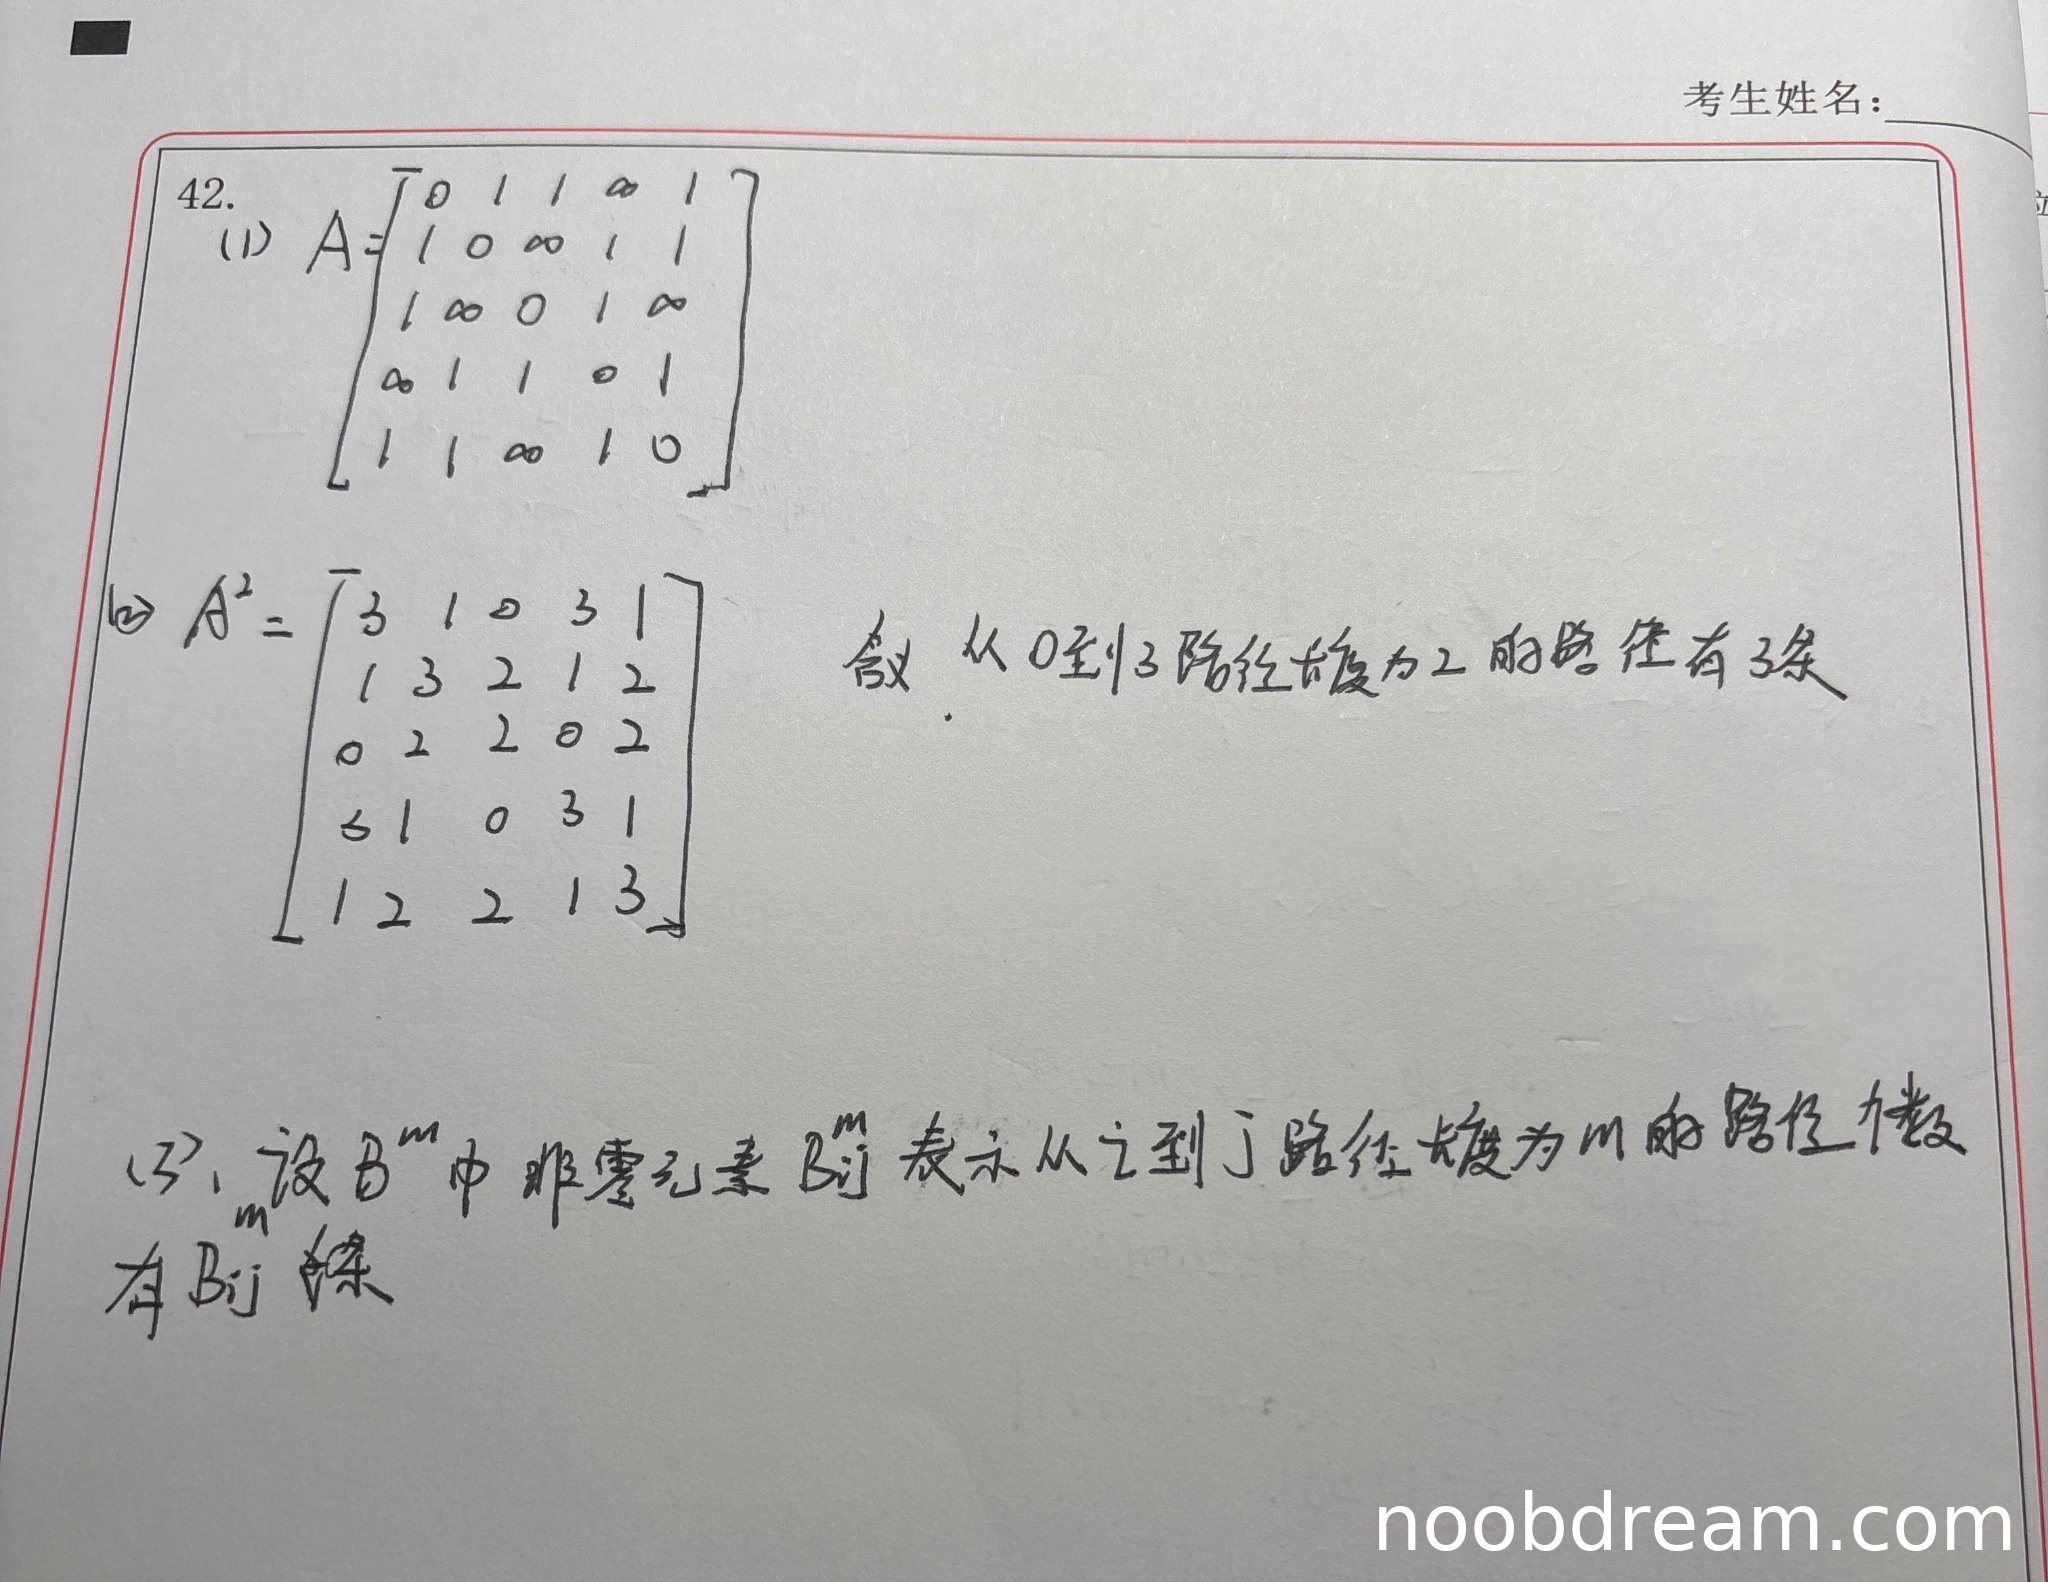 考生姓名：
42.
(1) A=
0 1 1 ∞ 1
1 0 ∞ 1 1
1 ∞ 0 1 ∞
∞ 1 1 0 1
1 1 ∞ 1 0
(2) A² =
3 1 0 3 1
1 3 2 1 2
0 2 2 0 2
3 1 0 3 1
1 2 2 1 3
含义 从0到3路径长度为2的路径有3条
(3)、设B^m中非零元素Bij^m表示从i到j路径长度为m的路径个数
有Bij^m条
noobdream.com